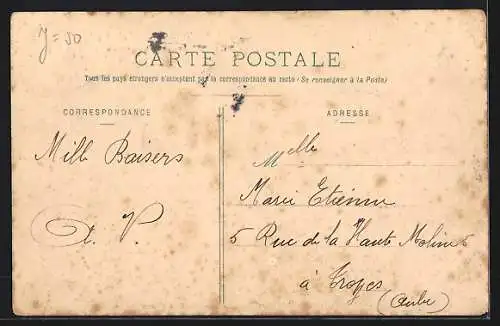 J = 50
CARTE POSTALE
Tous les pays étrangers n'acceptent pas la correspondance au recto (Se renseigner à la Poste)
CORRESPONDANCE
ADRESSE
Mille Baisers
A. P.
Melle
Marie Etienne
5 Rue de la Haute Moline
à Troyes
(Aube)